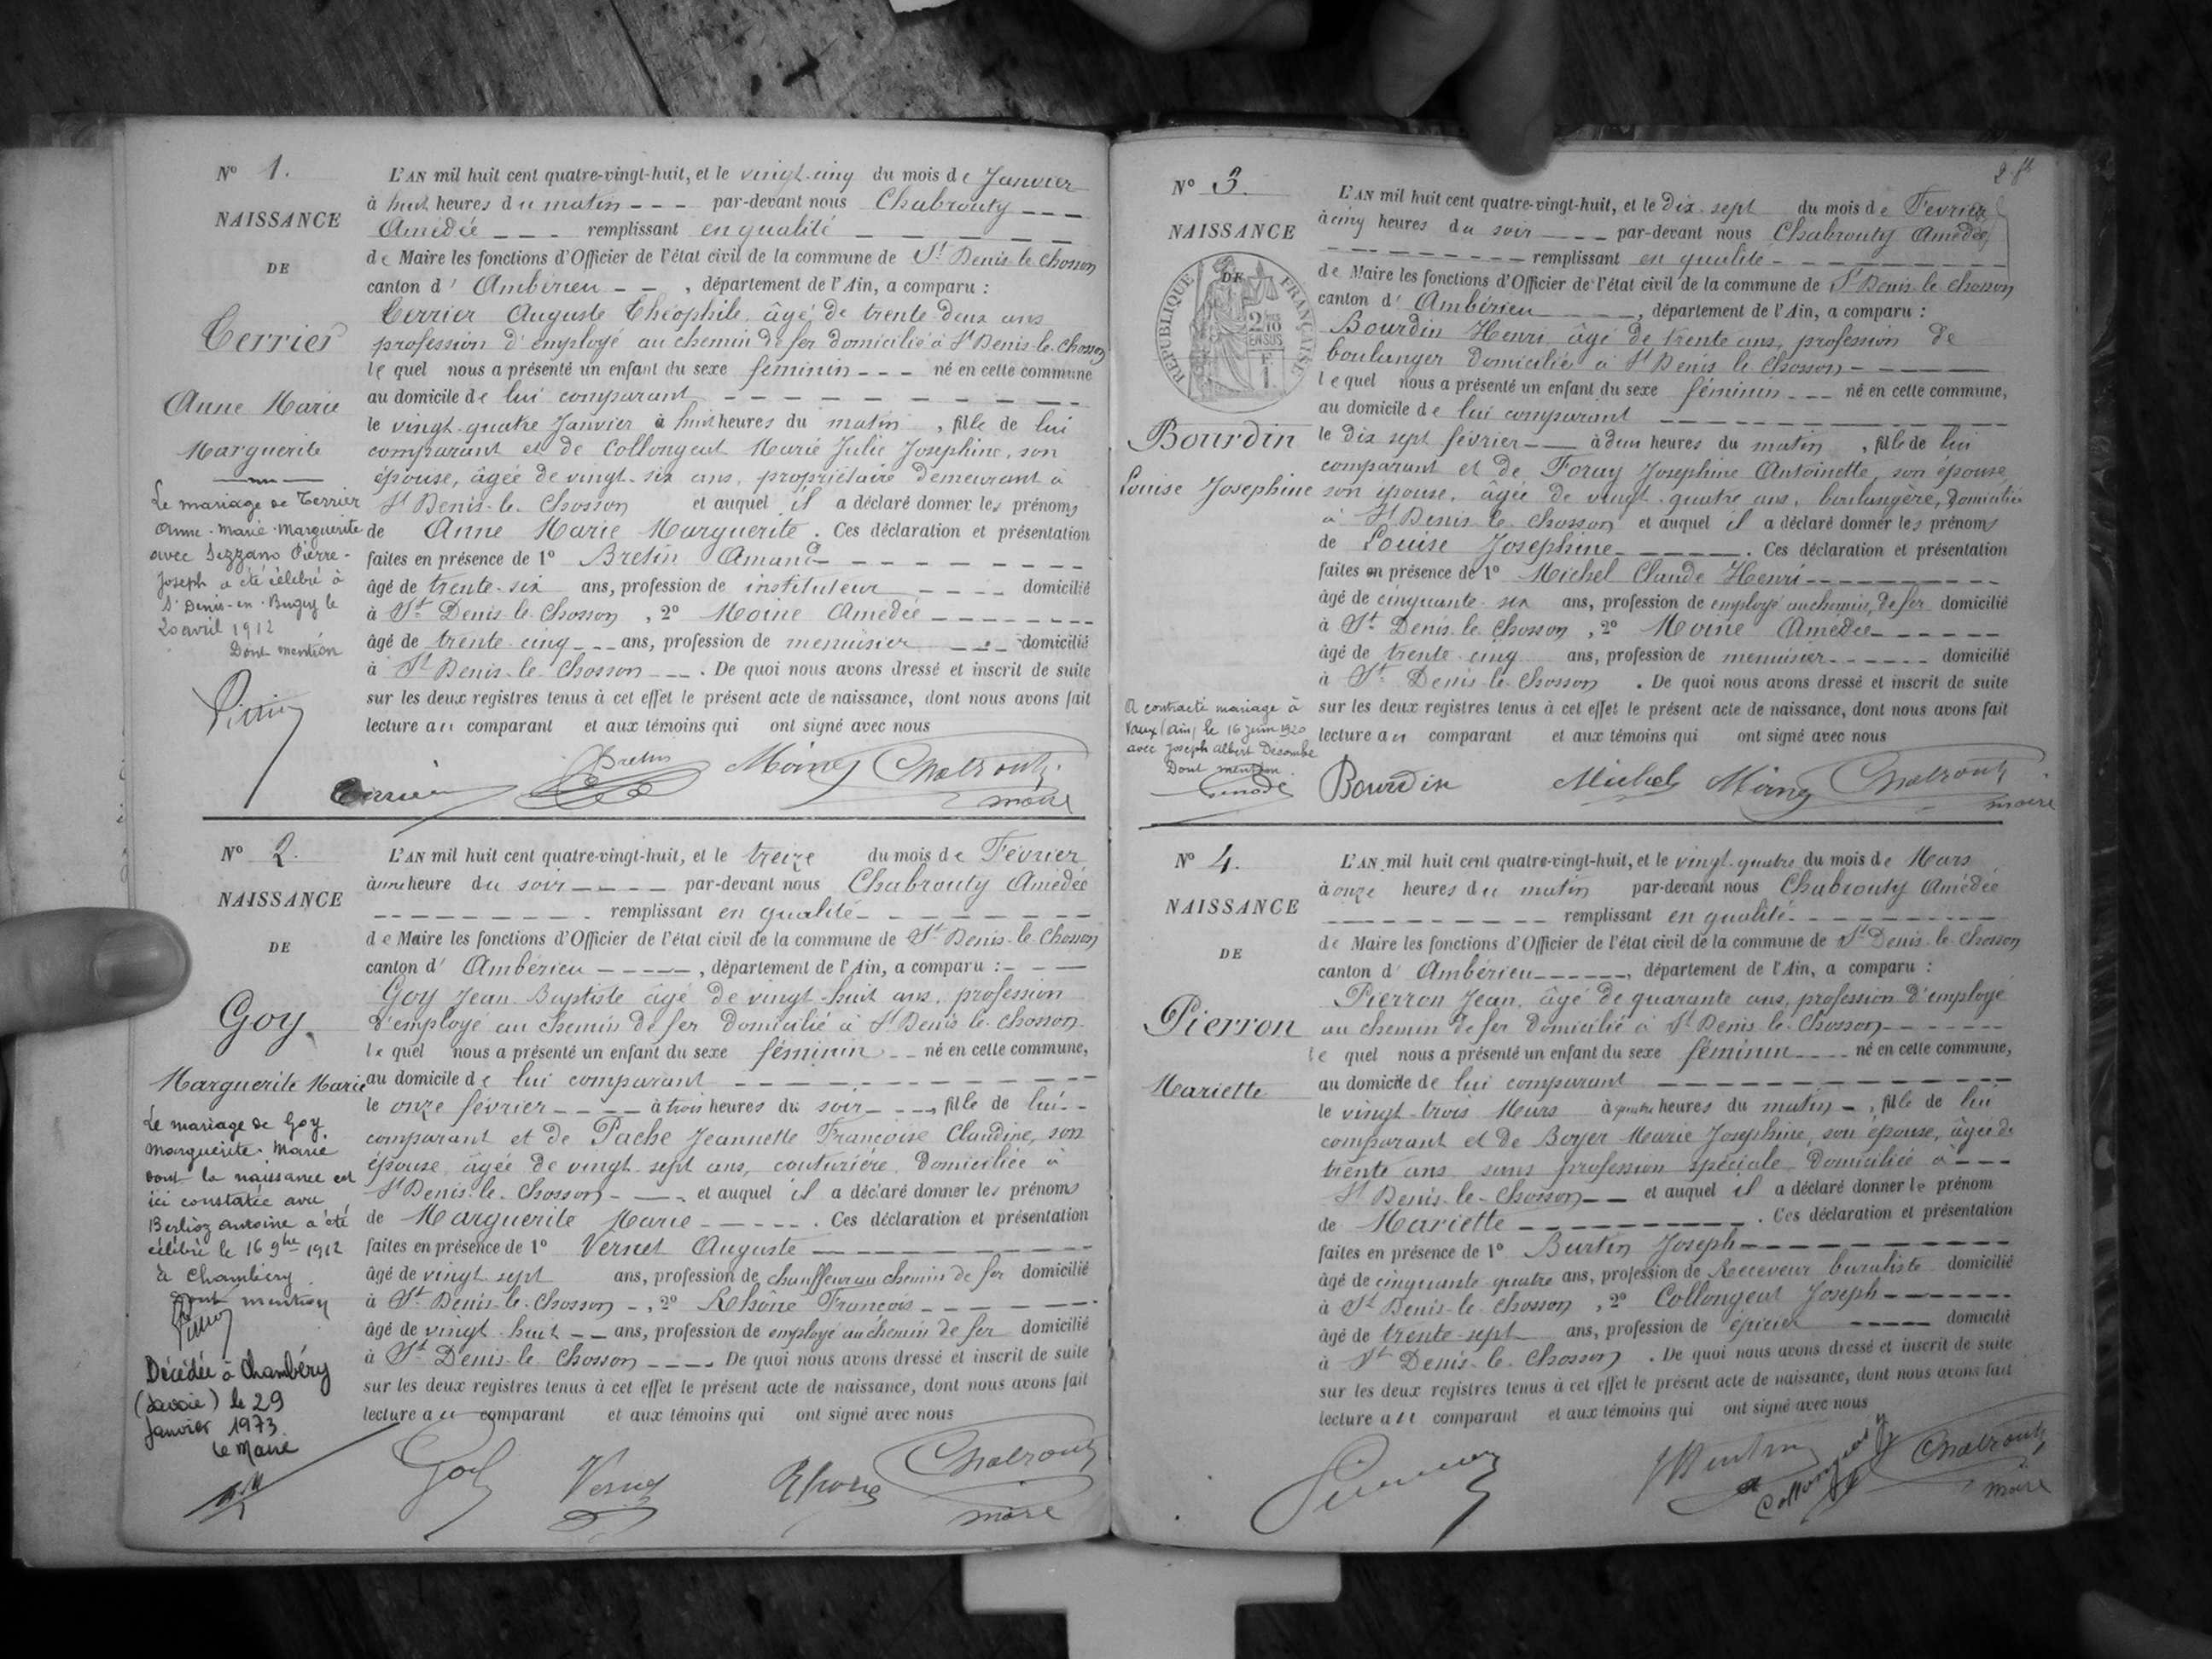 N° 1.
NAISSANCE
DE
Terrier
Anne Marie
Marguerite
Le mariage de Terrier
Anne-Marie-Marguerite
avec Sezzano Pierre-
Joseph a été célébré à
St Denis-en-Bugey le
20 avril 1912
Dont mention
L'AN mil huit cent quatre-vingt-huit, et le vingt-cinq du mois de Janvier
à huit heures du matin --- par-devant nous Chabrouty ---
Amédée --- remplissant en qualité ---
de Maire les fonctions d'Officier de l'état civil de la commune de St Denis-le-Chosson
canton d'Ambérieu --, département de l'Ain, a comparu :
Terrier Auguste Théophile, âgé de trente-deux ans
profession d'employé au chemin de fer domicilié à St Denis-le-Chosson
lequel nous a présenté un enfant du sexe féminin --- né en cette commune
au domicile de lui comparant ---
le vingt-quatre Janvier à huit heures du matin, fille de lui
comparant et de Collongeat Marie Julie Josephine, son
épouse, âgée de vingt-six ans, propriétaire demeurant à
St Denis-le-Chosson et auquel il a déclaré donner les prénoms
de Anne Marie Marguerite. Ces déclaration et présentation
faites en présence de 1° Bretin Amand ---
âgé de trente-six ans, profession de instituteur --- domicilié
à St Denis-le-Chosson, 2° Moine Amédée ---
âgé de trente-cinq --- ans, profession de menuisier --- domicilié
à St Denis-le-Chosson ---. De quoi nous avons dressé et inscrit de suite
sur les deux registres tenus à cet effet le présent acte de naissance, dont nous avons fait
lecture au comparant et aux témoins qui ont signé avec nous
Terrier Bretin Moine Chabrouty
maire
N° 2.
NAISSANCE
DE
Goy
Marguerite Marie
Le mariage de Goy
Marguerite-Marie
dont la naissance est
ici constatée avec
Berlioz Antoine a été
célébré le 16 9bre 1912
à Chambéry
dont mention
Décédée à Chambéry
(Savoie) le 29
Janvier 1973.
Le Maire
L'AN mil huit cent quatre-vingt-huit, et le treize du mois de Février
à une heure du soir --- par-devant nous Chabrouty Amédée
--- remplissant en qualité ---
de Maire les fonctions d'Officier de l'état civil de la commune de St Denis-le-Chosson
canton d'Ambérieu ---, département de l'Ain, a comparu : ---
Goy Jean Baptiste âgé de vingt-huit ans, profession
d'employé au chemin de fer domicilié à St Denis-le-Chosson
lequel nous a présenté un enfant du sexe féminin -- né en cette commune,
au domicile de lui comparant ---
le onze février --- à trois heures du soir ---, fille de lui --
comparant et de Pache Jeannette Françoise Claudine, son
épouse, âgée de vingt-sept ans, couturière, domiciliée à
St Denis-le-Chosson --- et auquel il a déclaré donner les prénoms
de Marguerite Marie ---. Ces déclaration et présentation
faites en présence de 1° Vernet Auguste ---
âgé de vingt-sept ans, profession de chauffeur au chemin de fer domicilié
à St Denis-le-Chosson -, 2° Rhône François ---
âgé de vingt-huit -- ans, profession de employé au chemin de fer domicilié
à St Denis-le-Chosson ---. De quoi nous avons dressé et inscrit de suite
sur les deux registres tenus à cet effet le présent acte de naissance, dont nous avons fait
lecture au comparant et aux témoins qui ont signé avec nous
Goy Vernet Rhone Chabrouty
maire
N° 3.
NAISSANCE
DE
RÉPUBLIQUE FRANÇAISE
2/10
EN SUS
Bourdin
Louise Josephine
A contracté mariage à
Vaux (Ain) le 16 Juin 1920
avec Joseph Albert Decombe
Dont mention.
L'AN mil huit cent quatre-vingt-huit, et le dix-sept du mois de Février
à cinq heures du soir --- par-devant nous Chabrouty Amédée
--- remplissant en qualité ---
de Maire les fonctions d'Officier de l'état civil de la commune de St Denis-le-Chosson
canton d'Ambérieu ---, département de l'Ain, a comparu :
Bourdin Henri, âgé de trente ans, profession de
boulanger domicilié à St Denis le Chosson ---
lequel nous a présenté un enfant du sexe féminin --- né en cette commune,
au domicile de lui comparant ---
le dix sept février --- à deux heures du matin, fille de lui
comparant et de Foray Josephine Antoinette, son épouse,
son épouse, âgée de vingt-quatre ans, boulangère, domiciliée
à St Denis-le-Chosson et auquel il a déclaré donner les prénoms
de Louise Josephine ---. Ces déclaration et présentation
faites en présence de 1° Michel Claude Henri ---
âgé de cinquante-six ans, profession de employé au chemin de fer domicilié
à St Denis-le-Chosson, 2° Moine Amédée ---
âgé de trente-cinq ans, profession de menuisier --- domicilié
à St Denis-le-Chosson. De quoi nous avons dressé et inscrit de suite
sur les deux registres tenus à cet effet le présent acte de naissance, dont nous avons fait
lecture au comparant et aux témoins qui ont signé avec nous
Bourdin Michel Moine Chabrouty
maire
N° 4.
NAISSANCE
DE
Pierron
Mariette
L'AN mil huit cent quatre-vingt-huit, et le vingt-quatre du mois de Mars
à onze heures du matin par-devant nous Chabrouty Amédée
--- remplissant en qualité ---
de Maire les fonctions d'Officier de l'état civil de la commune de St Denis-le-Chosson
canton d'Ambérieu ---, département de l'Ain, a comparu :
Pierron Jean, âgé de quarante ans, profession d'employé
au chemin de fer domicilié à St Denis-le-Chosson ---
lequel nous a présenté un enfant du sexe féminin --- né en cette commune,
au domicile de lui comparant ---
le vingt-trois Mars à quatre heures du matin -, fille de lui
comparant et de Boyer Marie Josephine, son épouse, âgée de
trente ans sans profession spéciale domiciliée à ---
St Denis-le-Chosson -- et auquel il a déclaré donner le prénom
de Mariette ---. Ces déclaration et présentation
faites en présence de 1° Burtin Joseph ---
âgé de cinquante-quatre ans, profession de Receveur buraliste domicilié
à St Denis-le-Chosson, 2° Collongeat Joseph ---
âgé de trente-sept ans, profession de épicier --- domicilié
à St Denis-le-Chosson. De quoi nous avons dressé et inscrit de suite
sur les deux registres tenus à cet effet le présent acte de naissance, dont nous avons fait
lecture au comparant et aux témoins qui ont signé avec nous
Pierron Burtin Collongeat Chabrouty
maire